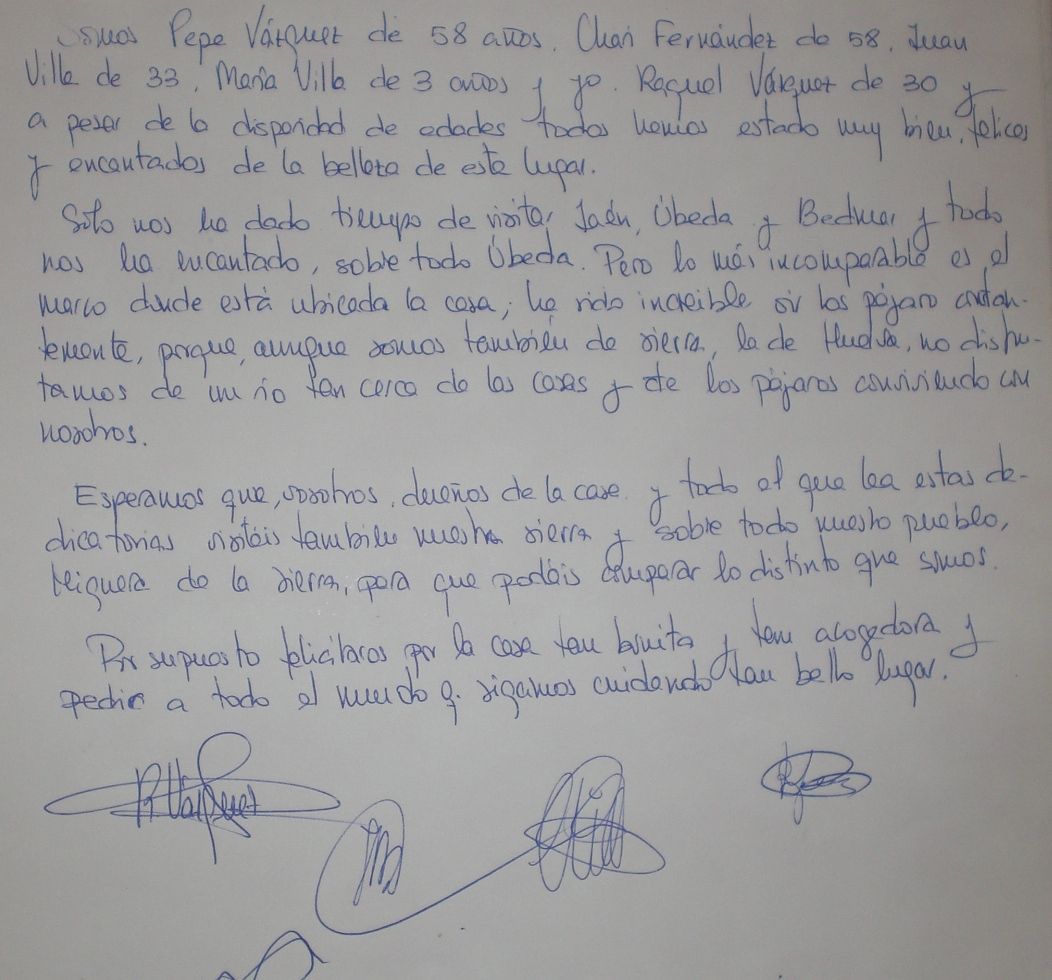 Somos Pepe Vázquez de 58 años, Chari Fernández de 58, Juan
Villa de 33, María Villa de 3 años y yo. Raquel Vázquez de 30 y
a pesar de la disparidad de edades todos hemos estado muy bien, felices
y encantados de la belleza de este lugar.
Solo nos ha dado tiempo de visitar Jaén, Úbeda y Bedmar y todo
nos ha encantado, sobre todo Úbeda. Pero lo más incomparable es el
marco donde está ubicada la casa; ha sido increible oir los pájaro
temente, porque, aunque somos también de sierra, la de Huelva, no disfru-
tamos de un río tan cerca de las casas y de los pájaros conviviendo con
nosotros.
Esperamos que, vosotros, dueños de la casa y todo el que lea estas de-
dicatorias visitéis también nuestra sierra y sobre todo nuestro pueblo,
Higuera de la sierra, para que podáis comparar lo distinto que somos.
Por supuesto felicitaros por la casa tan bonita y tan acogedora y
pedir a todo el mundo q. sigamos cuidando tan bello lugar.
R Vázquez